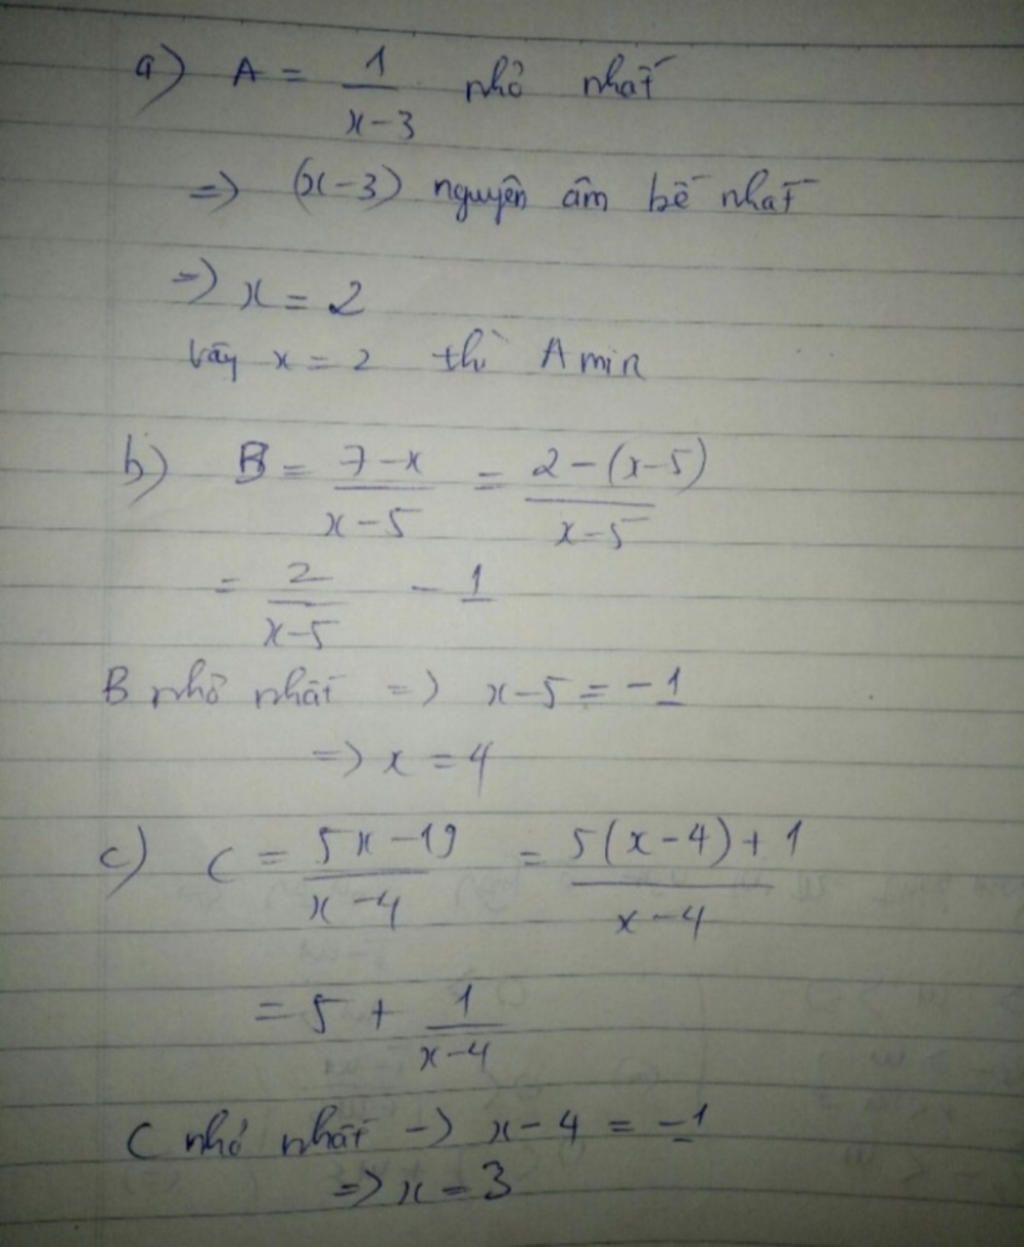 a) A = 1/(x-3) nhỏ nhất
=> (x-3) nguyên âm bé nhất
=> x = 2
vậy x = 2 thì A min
b) B = (7-x)/(x-5) = (2-(x-5))/(x-5)
= 2/(x-5) - 1
B nhỏ nhất => x-5 = -1
=> x = 4
c) C = (5x-19)/(x-4) = (5(x-4)+1)/(x-4)
= 5 + 1/(x-4)
C nhỏ nhất -> x-4 = -1
=> x = 3